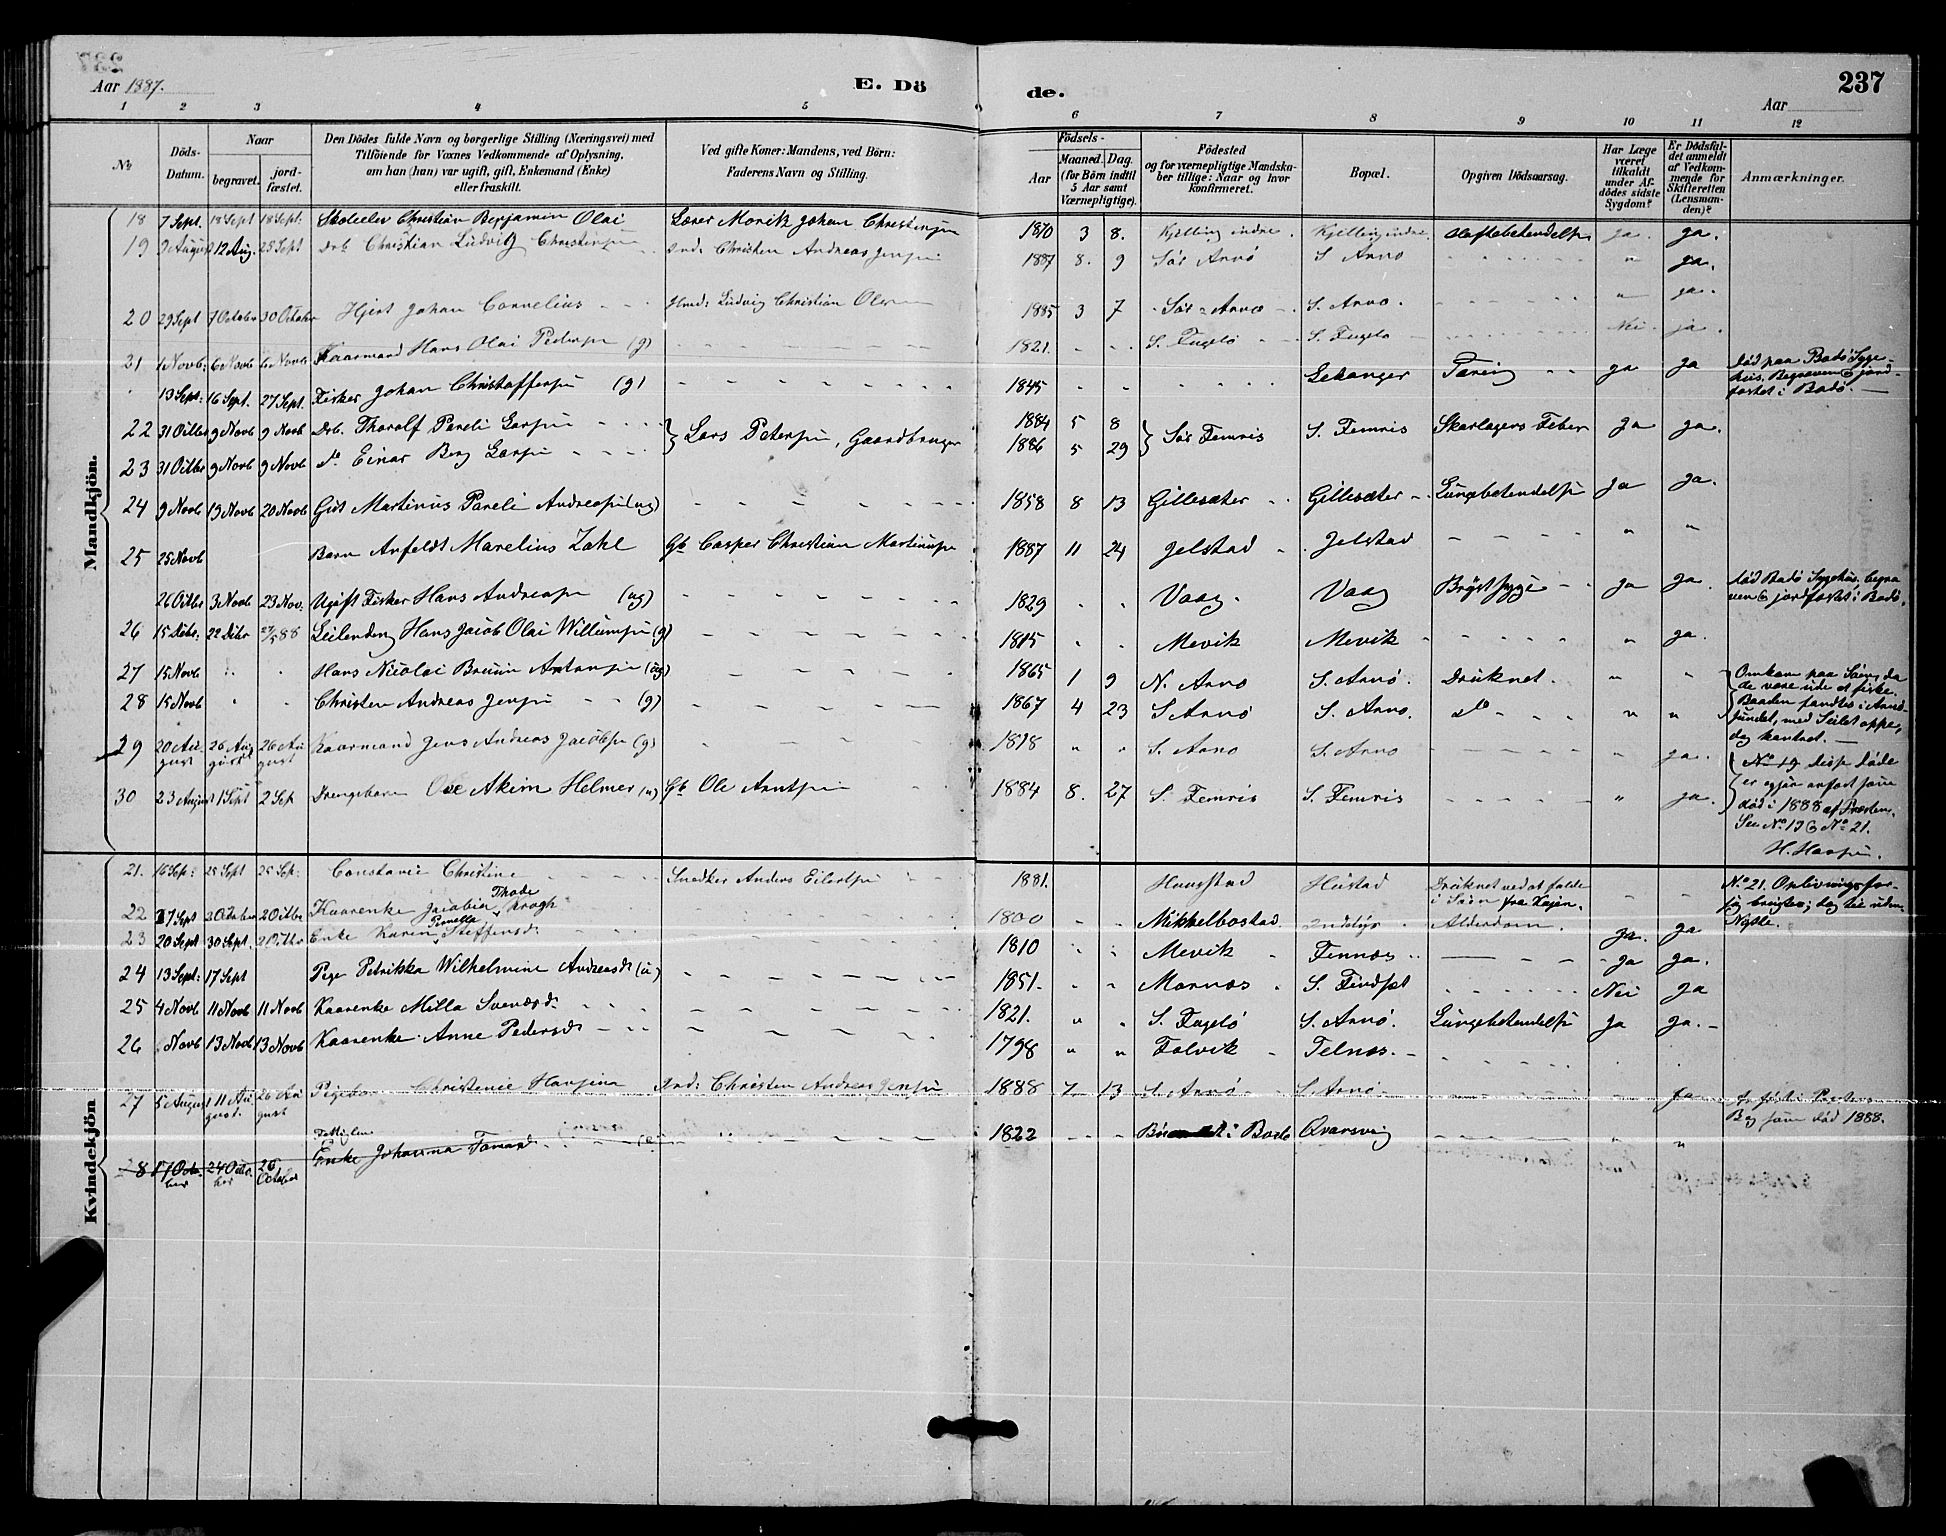 237
Aar 1887.
E. Dö
de.
237
Aar
1 2 3 4 5 6 7 8 9 10 11 12
No
Döds-Datum.
Naar
begravet.
jord-fæstet.
Den Dödes fulde Navn og borgerlige Stilling (Næringsvei) med
Tilföiende for Voxnes Vedkommende af Oplysning,
om han (hun) var ugift, gift, Enkemand (Enke)
eller fraskilt.
Ved gifte Koner: Mandens, ved Börn:
Faderens Navn og Stilling.
Födsels-
Aar
Maaned. Dag.
(for Börn indtil
5 Aar samt
Værnepligtige).
Födested
og for værnepligtige Mandska-
ber tillige: Naar og hvor
konfirmeret.
Bopæl.
Opgiven Dödsaarsag.
Har Læge
været
tilkaldt
under Af-
dödes sidste
Sygdom?
Er Dödsfal-
det anmeldt
af Vedkom-
mende for
Skifteretten
(Lensman-
den)?
Anmærkninger.
Mandkjön.
18 7 Sept. 18 Sept 18 Sept. Skoleelev Christian Benjamin Olai Lærer Morik Johan Christensen 1870 3 8. Kjelling indre Kjelling indre ja. ja.
19 9 August 12 Aug. 25 Sept Drb Christian Ludvig Christensen Ind: Christen Andreas Jensen 1887 8. 9 Sör Arnö S Arnö " ja.
20 29 Sept 7 October 30 October Johan Cornelius Ludvig Christian Olsen 1885 3 7 Sör Arnö S. Arnö. " ja.
21 1 Novb: 6 Novb 6 Novb Kaarmand Hans Olai Pedersen (g) 1821. S. Fugelö S. Fugelö Nei. ja.
13 Sept: 16 Sept. 27 Sept. Fisker Johan Christoffersen (g) 1845 " " Selsanger Tæring ja ja död paa Bodö Syge-
hus. Begraven & jord-
fæstet i Bodö.
22 31 Octbr 9 Novb 9 Novb Drb. Thorolf Pareli Larsen Lars Petersen, Gaardbruger 1884 5 8 Sör Femris S. Femris Skarlagens Feber ja ja.
23 31 Octbr 9 Novb 9 Novb do Einar Berg Larsen 1886 5 29
24 9 Novb 19 Novb 20 Novb Gut Martinus Pareli Andreasen (ug) 1858 8 13 Gillesæter Gillesæter Lungebetendelse ja ja.
25 25 Novb Barn Arfeldt Marelius Zahl Gb Casper Christian Martinusen 1887 11 24 Jelstad Jelstad " "
26 Octbr 3 Novb 23 Nov. Ugift Fisker Hans Andreasen (ug) 1829 " " Vaag. Vaag Brystsyge ja ja. död Bodö Sygehus. begra-
ven & jordfæstet i Bodö.
26 15 Debr: 22 Debr 27/5 88 Leilending Hans Jacob Olai Willumsen (g) 1815 " " Mevik Mevik " ja.
27 15 Novb " " Hans Nicolai Bruun Antonsen (ug) 1865 1 9 N. Arnö S. Arnö. Druknet. " " Omkom paa Söen, da
de vare ude at fiske.
28 15 Novb " " Christen Andreas Jensen (g) 1867 4 23 S Arnö S. Arnö. do " " Baaden fandtes i Arnö-
sundet, med Seilet oppe,
dog kantret.
29 20 August 26 August 26 August Kaarmand Jens Andreas Jacobsen (g) 1818 " " S. Arnö S. Arnö ja. No 19 disse döde
30 23 August 1 Sept 2 Sep Drengebarn Ole Akim Helmer (u) Gb Ole Arntsen 1884 8. 27 S. Femris S. Femris " ja. er ogsaa anfört som
död i 1888 af Præsten.
See No 19 & No 21.
H. Hansen.
Kvindekjön
21. 16 Sep: 25 Sept 25 Sep: Constanse Christine Snedker Anders Eilertsen 1881. Haugstad Hustad Druknet ved at falde
i Söen fra Kajen. No 21. Oplivningsfor-
sög brugtes, dog uden
Nytte.
22 17 Sept 2 October 2 Octbr Kaarenke Jacobia Thode Krogh 1800 " Mikkelbostad. Indstyr Alderdom. ja. ja
23 20 Sept 30 Sept. 2 Octbr Enke Karen Pernella Steffensd: 1810 " " Mevik Finnæs ja ja.
24 13 Sept: 17 Sept Pige Petrikka Wilhelmine Andreasd: (u) 1851. " " Mornæs S. Findset Nei ja
25 4 Novb 11 Novb 11 Novb Kaarenke Milla Svensd: 1821. " " S. Fugelö S. Arnö. Lungebetendelse ja ja.
26 Novb 13 Novb 13 Novb Kaarenke Anne Pedersd: 1798 " " Folvik Telnæs.
27 5 August 11 August 26 August Pigeb. Christense Hansine Ind: Christen Andreas Jensen 1888 7 13 S. Arnö S Arnö ja Anfört i Præstens
Bog som död 1888.
28 17 October 24 October 26 October Fattiglem Enke Johanna Tomasd: 1822 i Bodö Qvarsvig " "